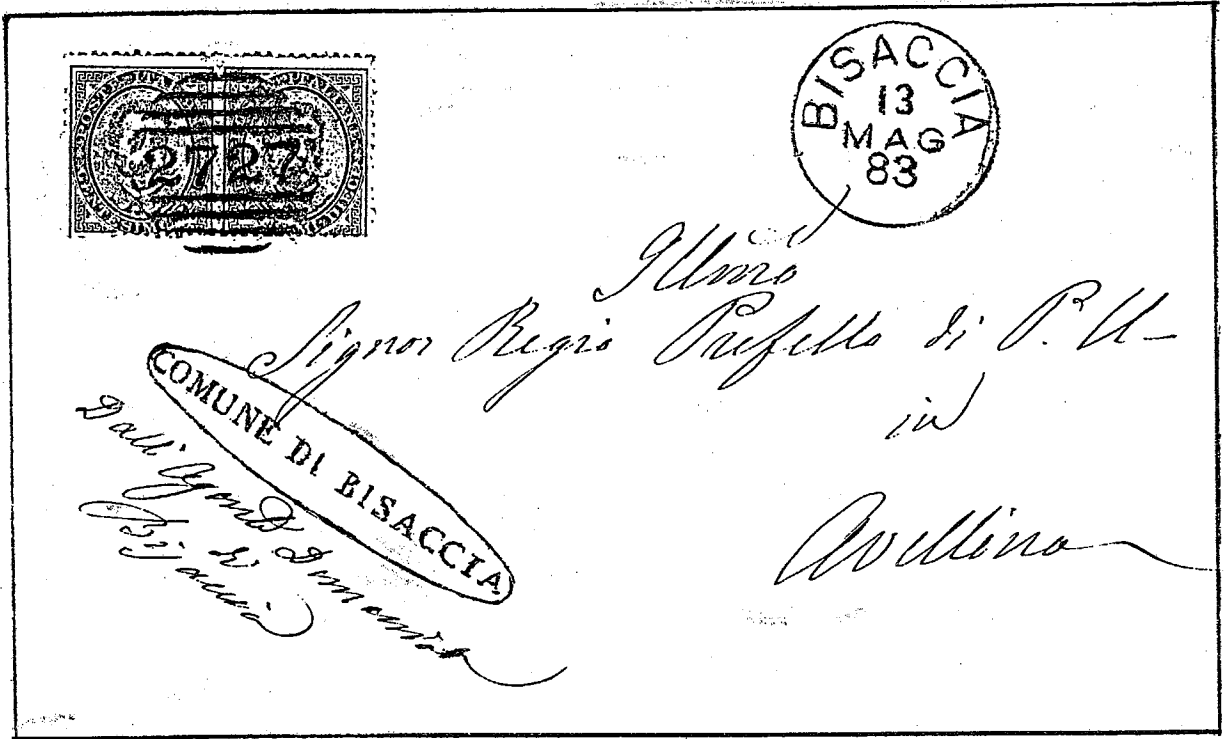 2727
BISACCIA
13
MAG
83
Illmo
Signor Regio Prefetto di P. U-
in
Avellino
COMUNE DI BISACCIA
Dall' Agente Demaniale
di
Bisaccia